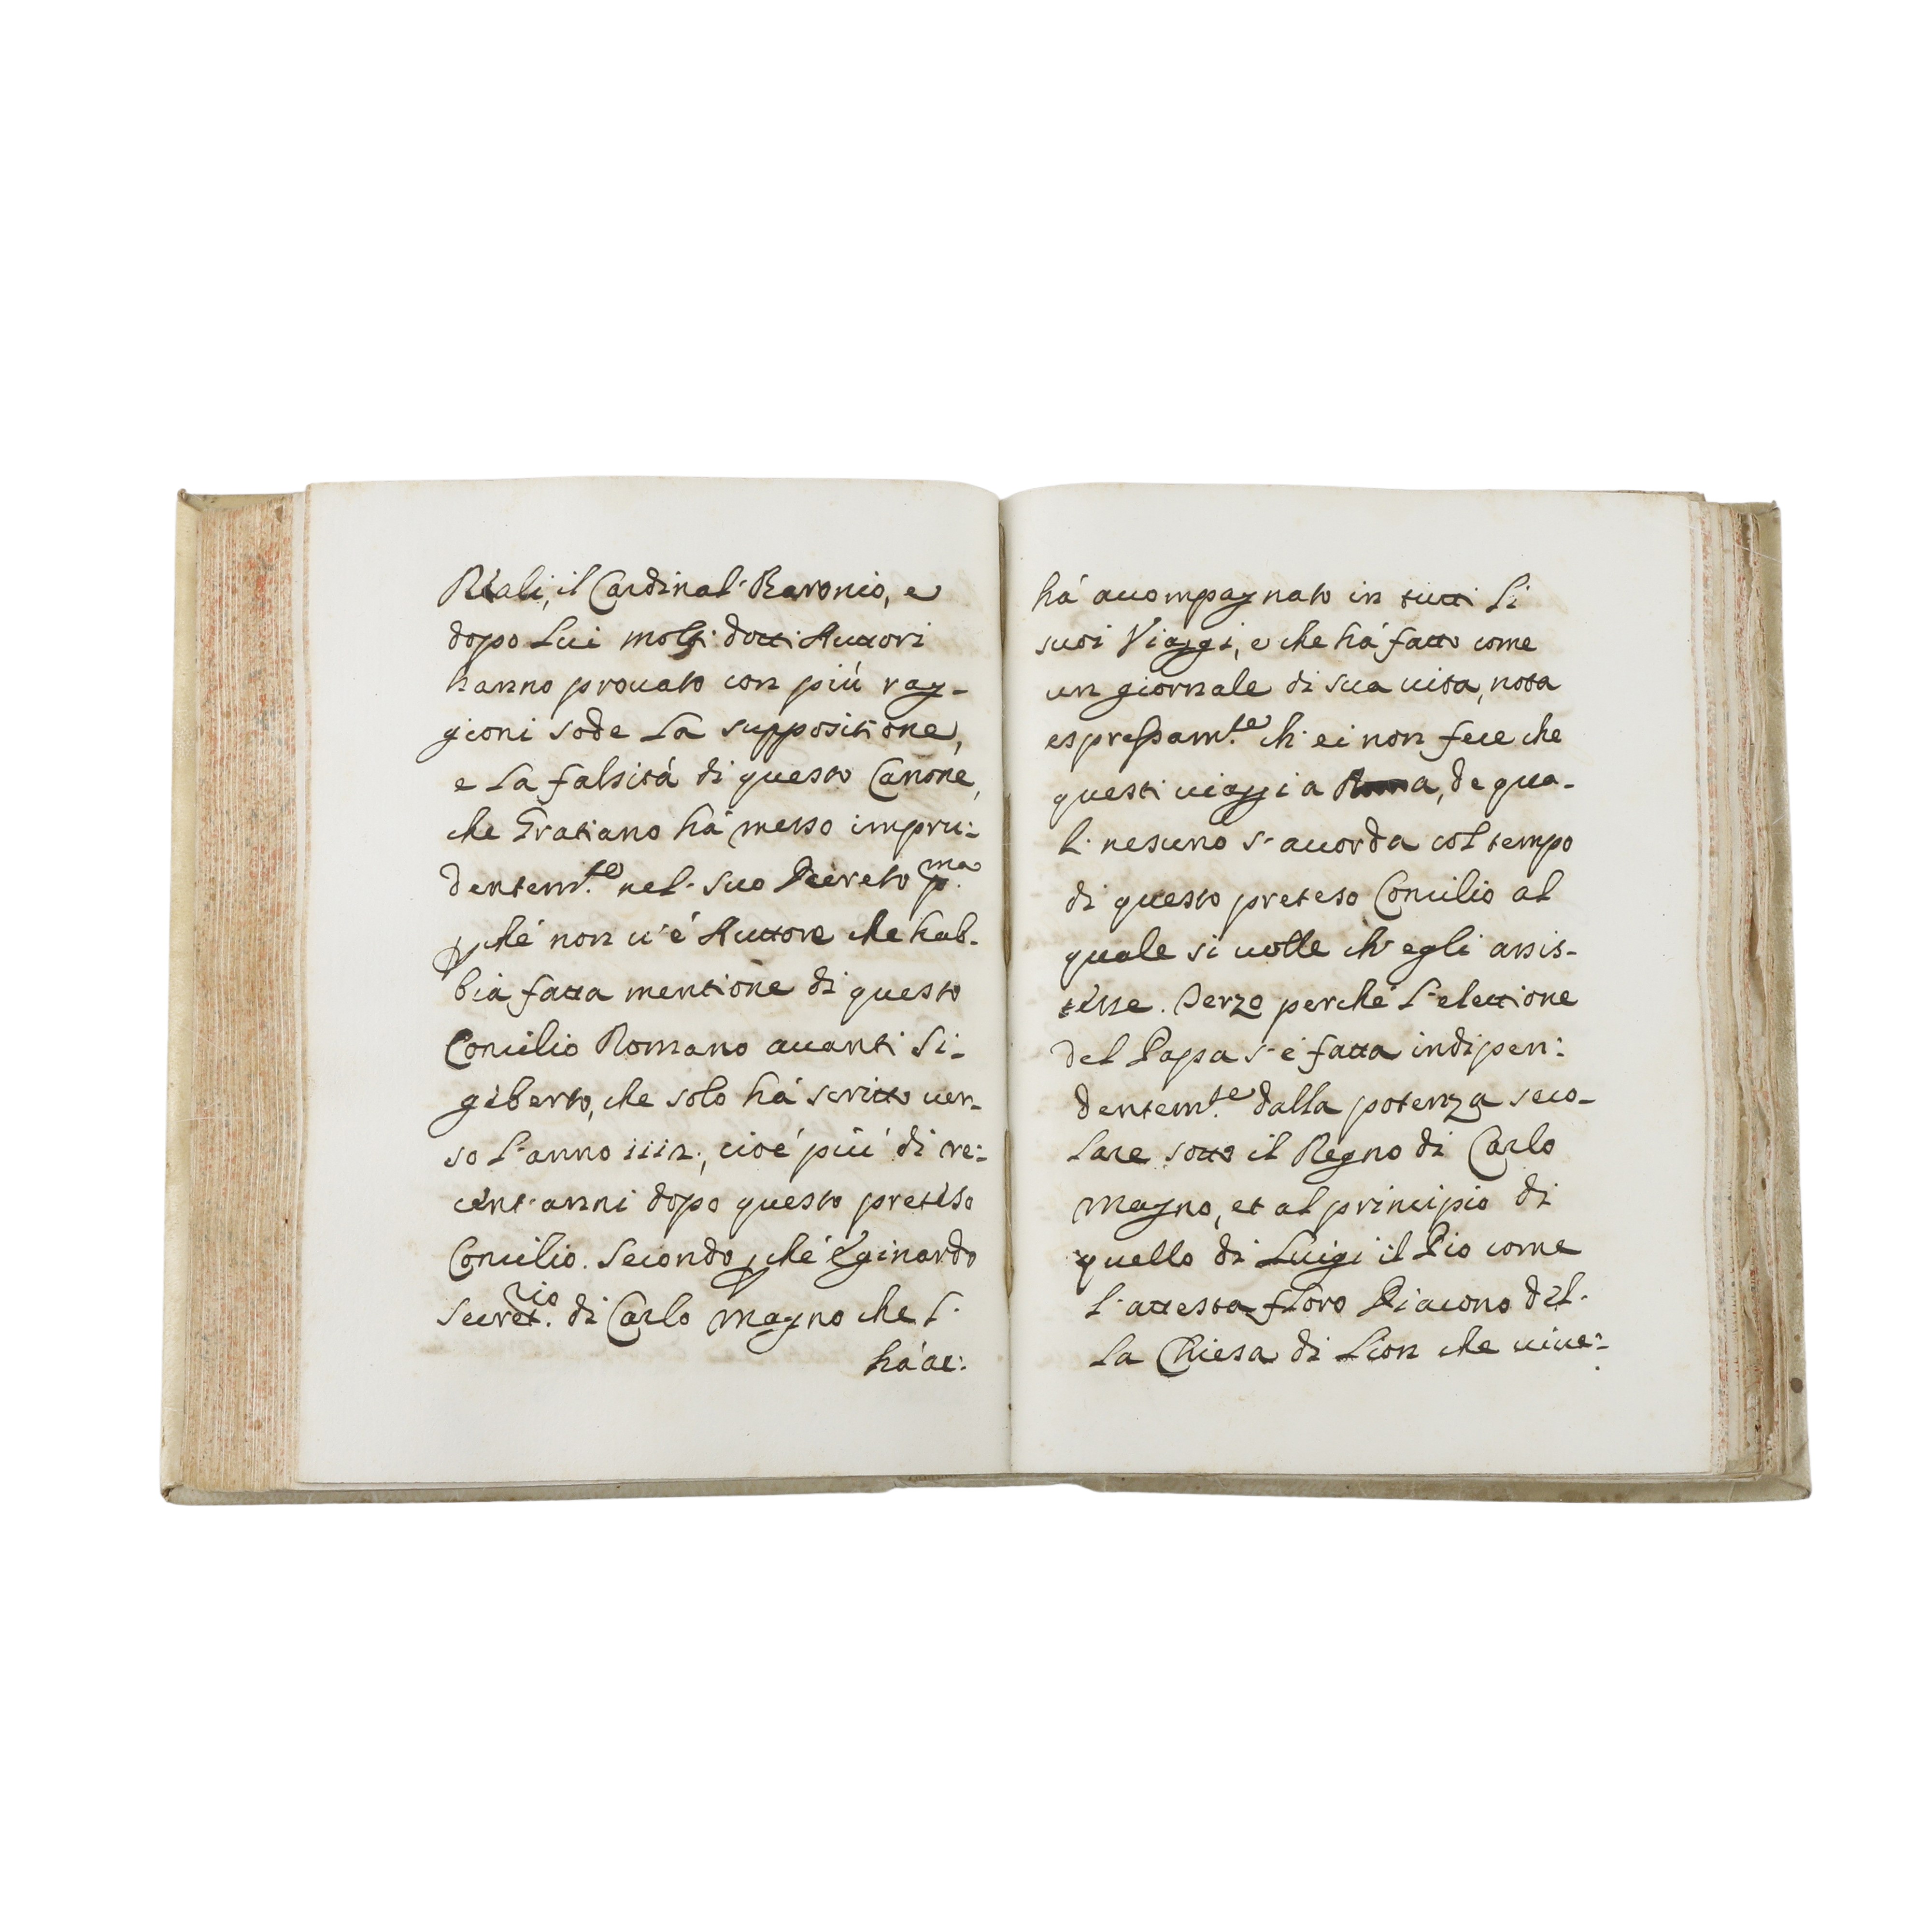 Reali, il Cardinal Baronio, e
dopo Lui molti dotti Auttori
hanno prouato con più rag-
gioni sode La suppositione,
e La falsità di questo Canone,
che Gratiano há messo impru:
dentem.te nel suo Decreto p.ma
ꝑché non u'é Auttore che hab-
bia fatta mentione di questo
Concilio Romano auanti Si-
geberto, che solo há scritto uer-
so L'anno 1112., cioé più di re:
cent'anni dopo questo preteso
Concilio. Secondo ꝑché Eginardo
Secret.rio di Carlo Magno che L'
há ac:
há accompagnato in tutti Li
suoi Viaggi, e che há fatto come
un giornale di sua uita, nota
espressam.te ch'ei non fece che
questi uiaggi a Roma, de qua-
li nesuno s'accorda col tempo
di questo preteso Concilio al
quale si uolle ch'egli assis-
tesse. Terzo perché L'elettione
del Papa s'é fatta indipen:
dentem.te dalla potenza seco-
Lare sotto il Regno di Carlo
Magno, et al principio di
quello di Luigi il Pio come
L'attesta floro Diacono del-
La Chiesa di Lion che uiue: